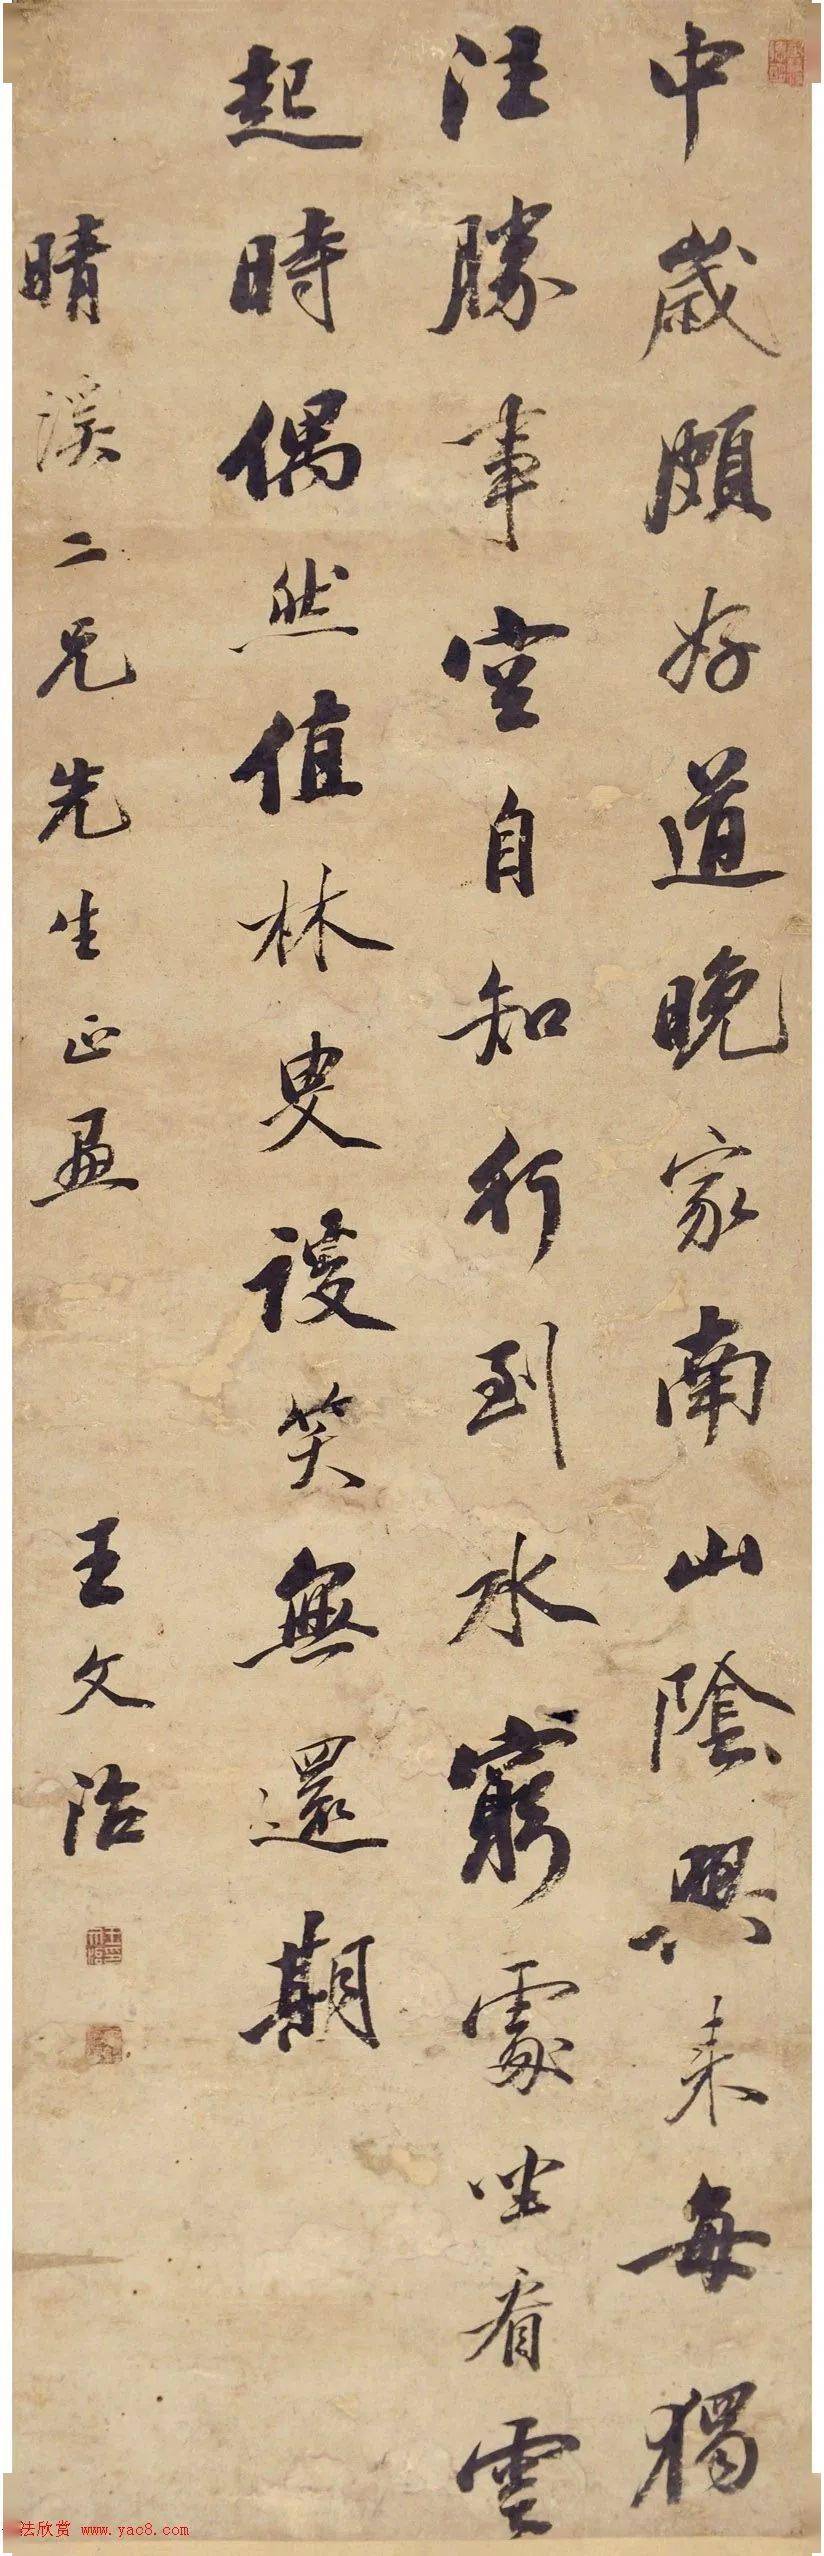 中歲頗好道晚家南山陰興来每獨
往勝事空自知行到水窮處坐看雲
起時偶然值林叟談笑無還期
晴溪二兄先生正畫
王文治
法欣赏 www.yac8.com